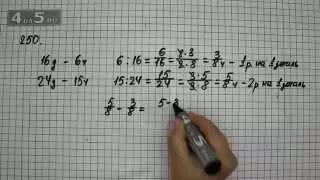 4 a 5 RU
250.
16д – 6ч   6 : 16 = 6/16 = 2·3/2·8 = 3/8 ч – 1р на 1 деталь
24д – 15ч   15 : 24 = 15/24 = 3·5/3·8 = 5/8 ч – 2р на 1 деталь
5/8 – 3/8 = 5–3